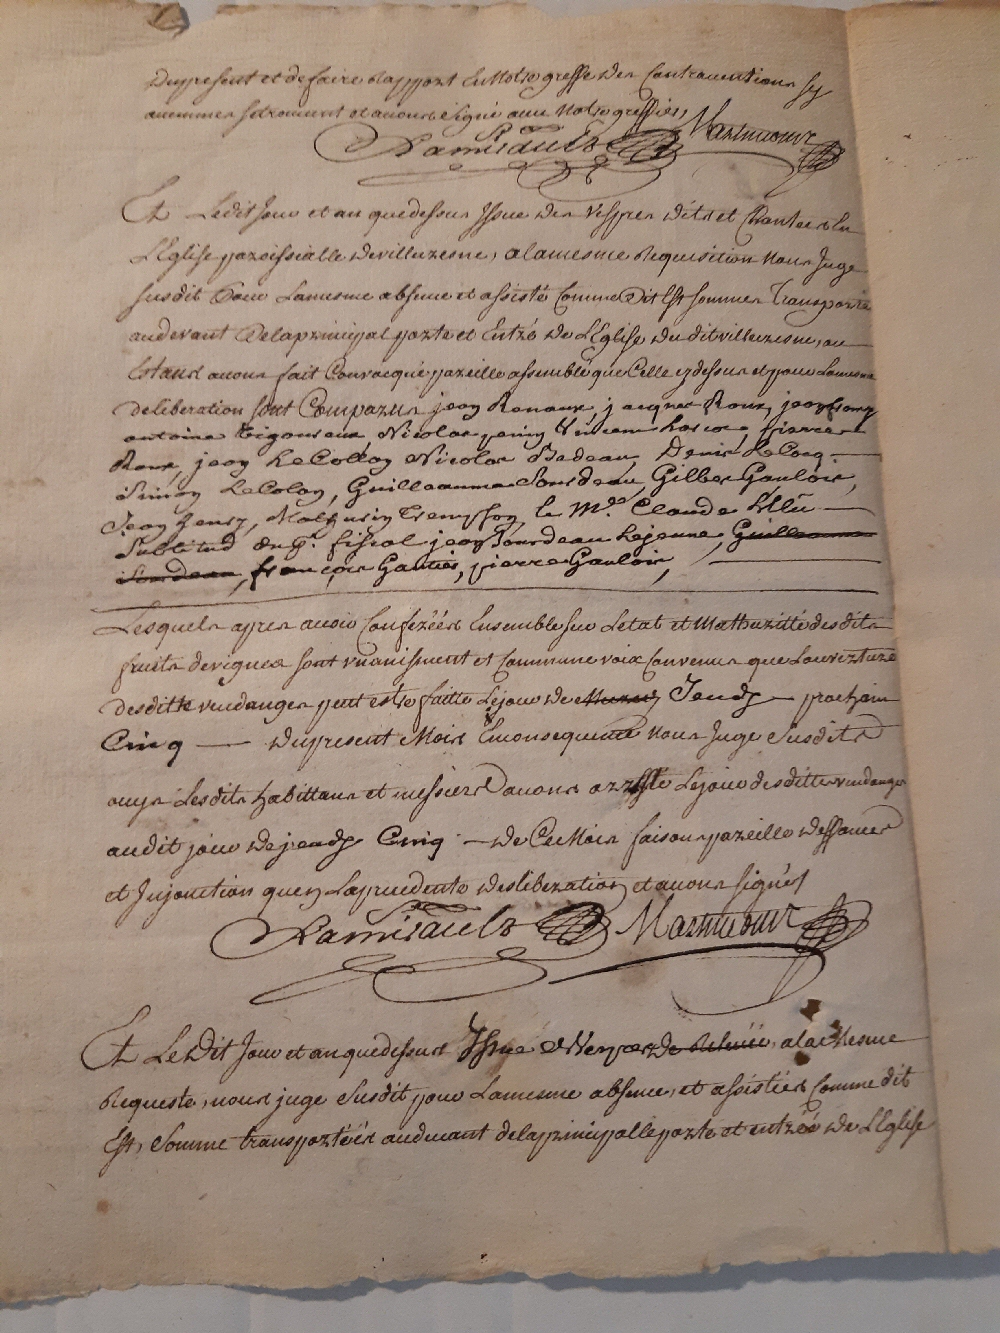 du present et de faire Rapport En Notre greffe des Contraventions sy
aucunnes se trouvent et avons signé avec Notre greffier,
Ramisault Marmuour
Et Ledit Jour et an que dessus Issue des Vespres dites et Chantées En
L'Eglise parroissialle de villuzesne, a la mesme Requisition Nous Juge
susdit Pour La mesme absence et assisté Comme Dit Est sommes Transporté
au devant De la principal porte et Entré de L'Eglise dudit villuzesne, ou
Estant avons fait Convocqué pareille assemblé que Celle cy dessus et pour La mesme
deliberation sont Comparus jean Renaux, jacques Roux, jean
antoine Nicolas Vincent pierre
Roux, jean Le Collon Nicolas Badeau, Denis Le Cocq
Simon Le Colon, Guilleaumme Sourdeau, Gilbes Gaulois,
Jean henry, Mathurin le Me. Claude
Subtitud du pr. fiscal jean Sourdeau Lejeunne, Guilleaumme
Sourdeau, françois Gautier, pierre Gaulois,
Lesquels apres avoir Conferéés Ensemble sur L'état et Mathuritté desdits
fruits de vignes sont unanisment et Commune voix Convenus que Louverture
desditte vendanges peut estre faitte Le jour de Jeudy prochain
Cinq du present Mois En consequence Nous Juge Susdits
ouys Lesdits habittans et messiers avons arresté Le jour desdittes vendanges
audit jour de jeudy Cinq de Ce Mois faisons pareille deffences
et Injonction qu'en La precedente desliberation et avons signés
Ramisault Marmuour
Et Le Dit Jour et an que dessus Issue de Vespres de Relevée, a la Mesme
Requeste, nous juge Susdit pour La mesme absence, et assistées Comme dit
Est, Somme transportées au devant de la principalle porte et entréé de L'Eglise